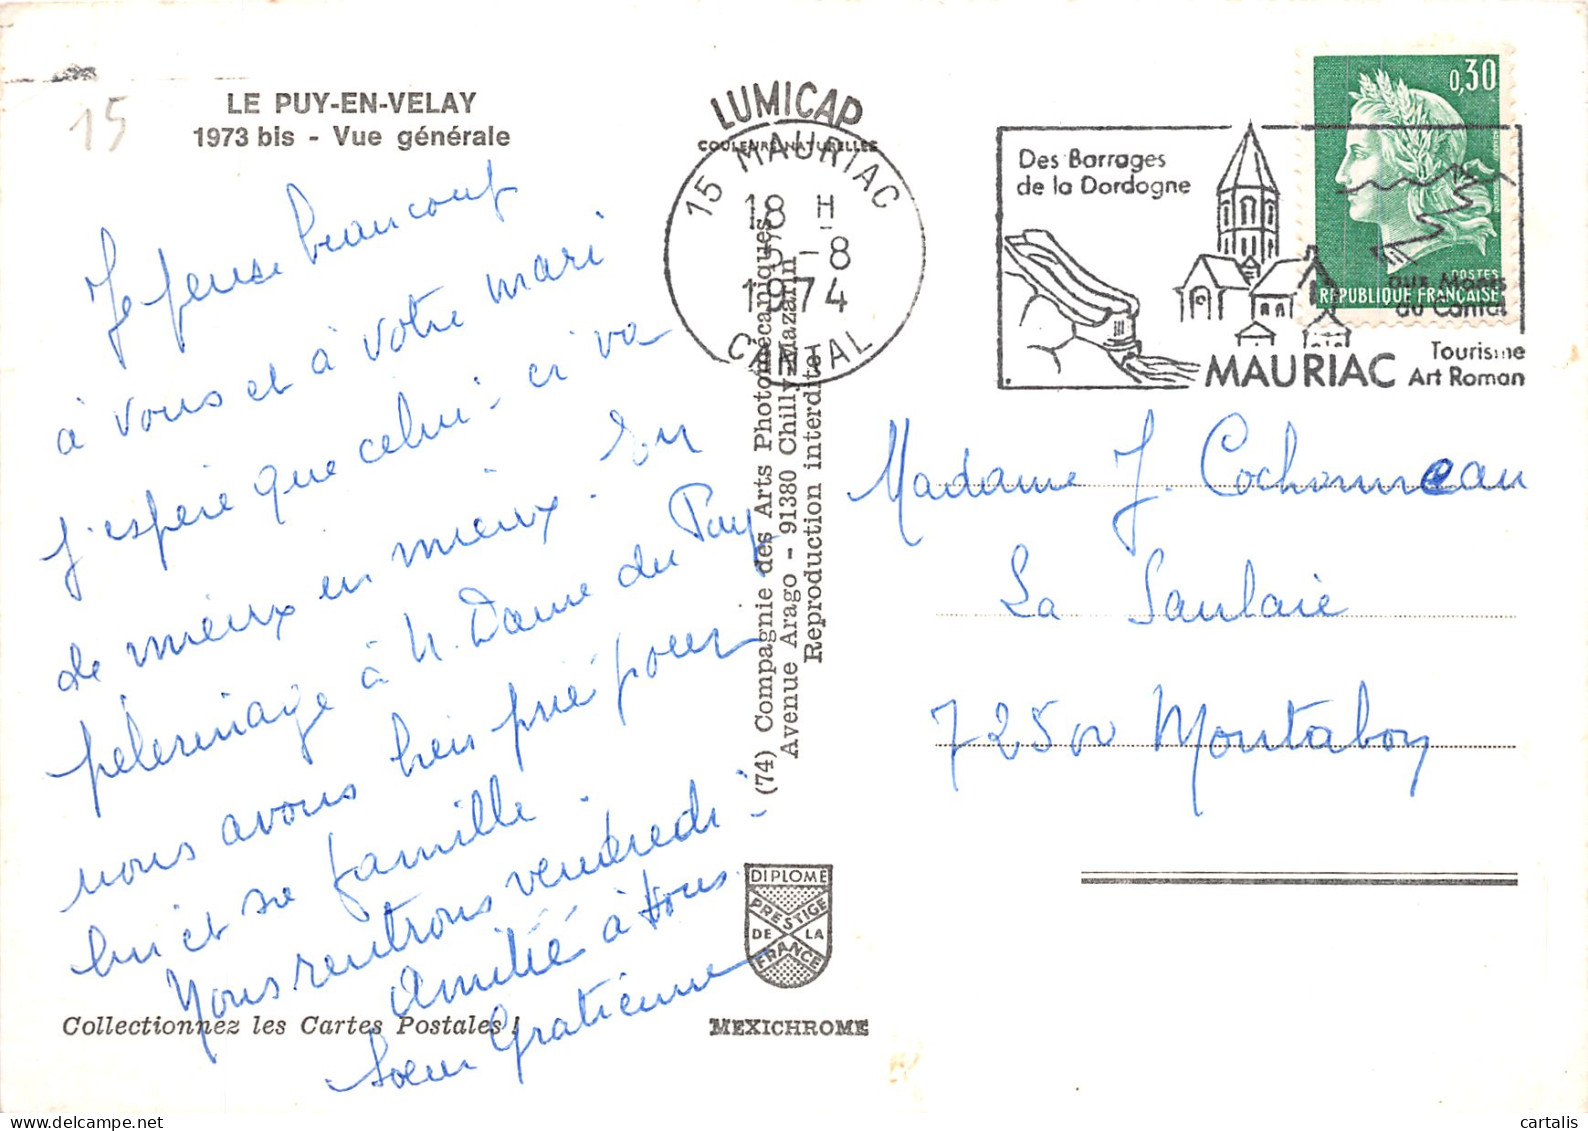 15
LE PUY-EN-VELAY
1973 bis - Vue générale
Je pense beaucoup
à vous et à votre mari
J'espère que celui-ci va
de mieux en mieux. En
pélerinage à N. Dame du Puy
nous avons bien prié pour
lui et sa famille.
Nous rentrons vendredi.
Amitié à tous.
Soeur Gratienne
Collectionnez les Cartes Postales !
LUMICAP
COULEURS NATURELLES
15 MAURIAC
18 H
5-8
1974
CANTAL
(74) Compagnie des Arts Photomécaniques
Avenue Arago - 91380 Chilly-Mazarin
Reproduction interdite
DIPLOME
PRESTIGE
DE LA
FRANCE
MEXICHROME
Des Barrages
de la Dordogne
aux Monts
du Cantal
MAURIAC
Tourisme
Art Roman
0,30
POSTES
REPUBLIQUE FRANÇAISE
Madame J. Cochonneau
La Saulaie
72500 Montabon
cartalis